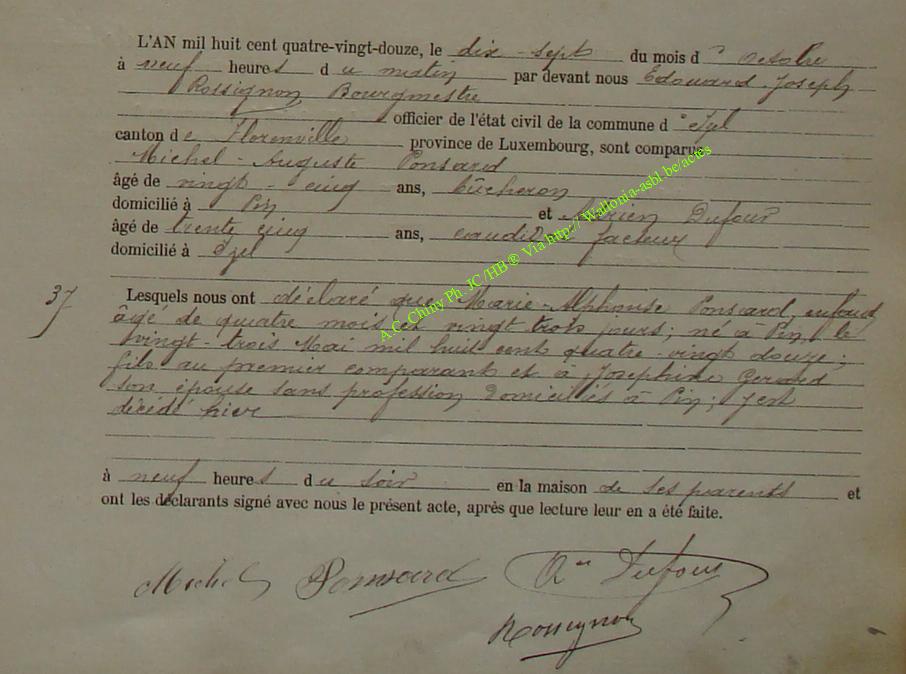 L'AN mil huit cent quatre-vingt-douze, le dix-sept du mois d' octobre
à neuf heures du matin par devant nous Edouard-Joseph
Rossignon Bourgmestre
officier de l'état civil de la commune d' Izel
canton de Florenville province de Luxembourg, sont comparus
Michel-Auguste Ponsard
âgé de vingt-cinq ans, bûcheron
domicilié à Pin et Dufour
âgé de trente cinq ans, facteur
domicilié à Izel
37
Lesquels nous ont déclaré que Marie-Alphonse Ponsard, enfant
âgé de quatre mois et vingt trois jours; né à Pin, le
vingt-trois Mai mil huit cent quatre-vingt douze;
fils au premier comparant et à Joséphine Gerard
son épouse sans profession domiciliés à Pin; y est
décédé hier
à neuf heures du soir en la maison de ses parents et
ont les déclarants signé avec nous le présent acte, après que lecture leur en a été faite.
Michel Ponsard Dufour
Rossignon
A.C. Chiny Ph. JC /HB ® Via http://Wallonia-asbl.be/actes